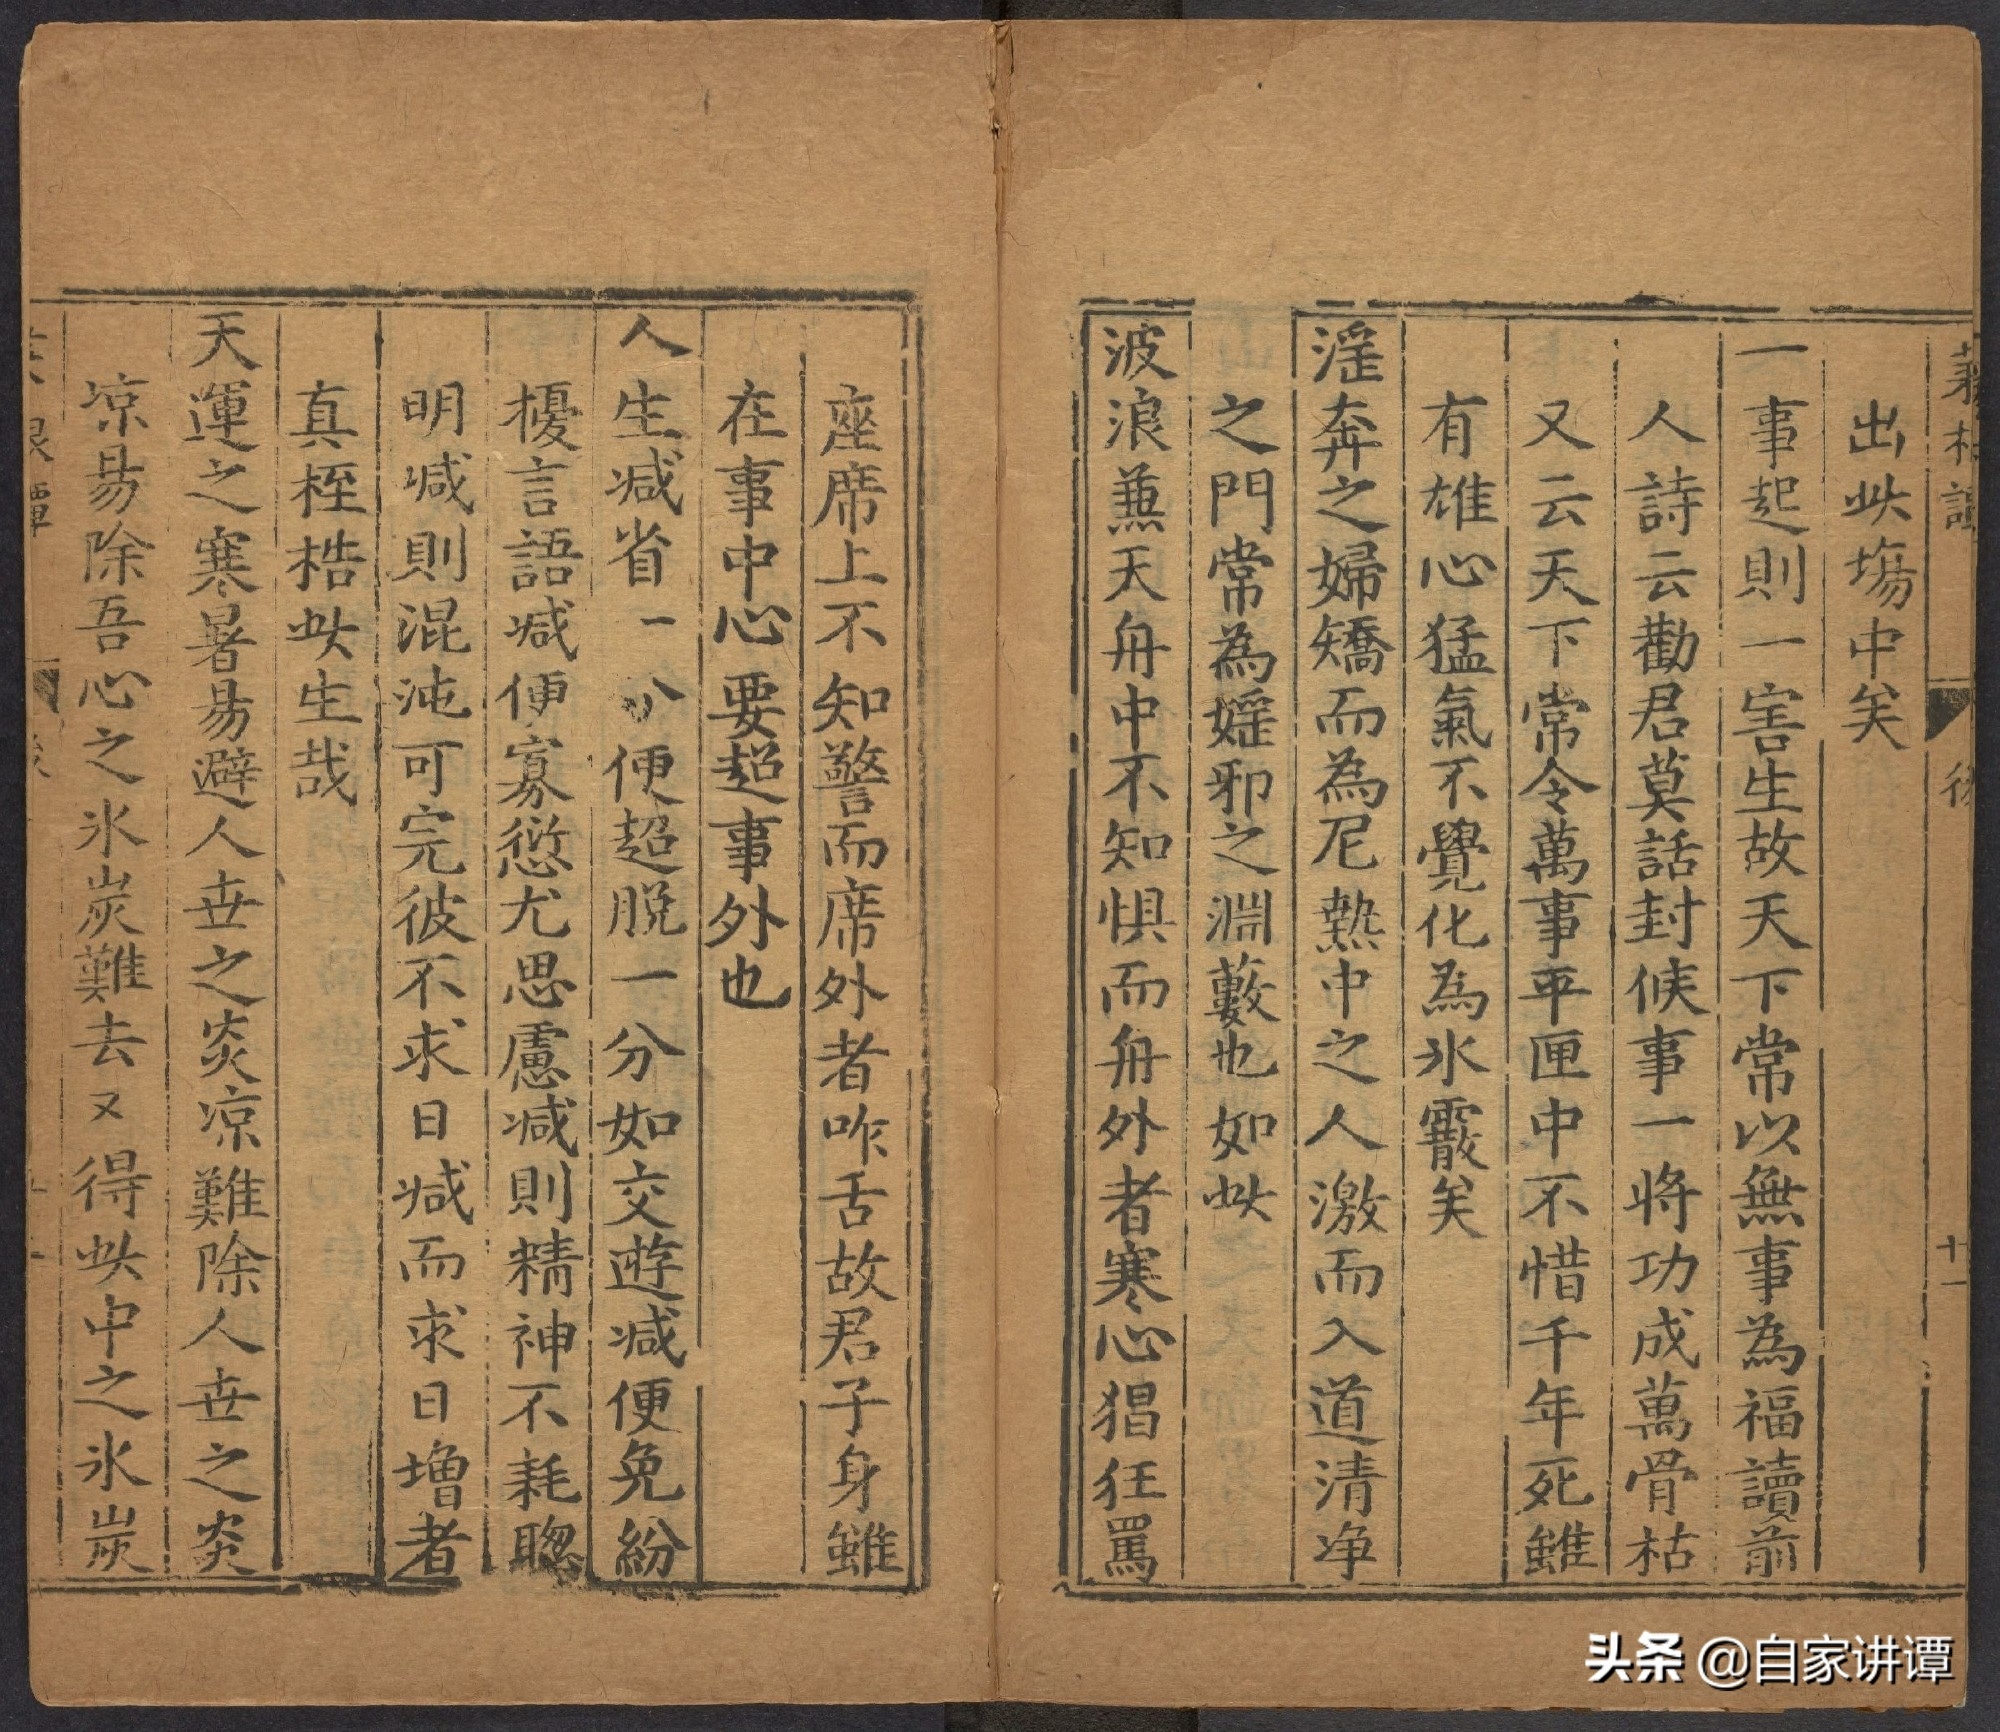 菜根譚 後 十一
出此塲中矣
一事起則一害生故天下常以無事為福讀前
人詩云勸君莫話封候事一將功成萬骨枯
又云天下常令萬事平匣中不惜千年死雖
有雄心猛氣不覺化為氷霰矣
淫奔之婦矯而為尼熱中之人激而入道清净
之門常為婬邪之淵藪也如此
波浪蒹天舟中不知惧而舟外者寒心猖狂罵
座席上不知警而席外者咋舌故君子身雖
在事中心要超事外也
人生减省一分便超脱一分如交遊减便免紛
擾言語减便寡愆尤思慮减則精神不耗聰
明减則混沌可完彼不求日减而求日増者
真桎梏此生哉
天運之寒暑易避人世之炎凉難除人世之炎
凉易除吾心之氷炭難去又得此中之氷炭
根譚
頭条 @自家讲谭